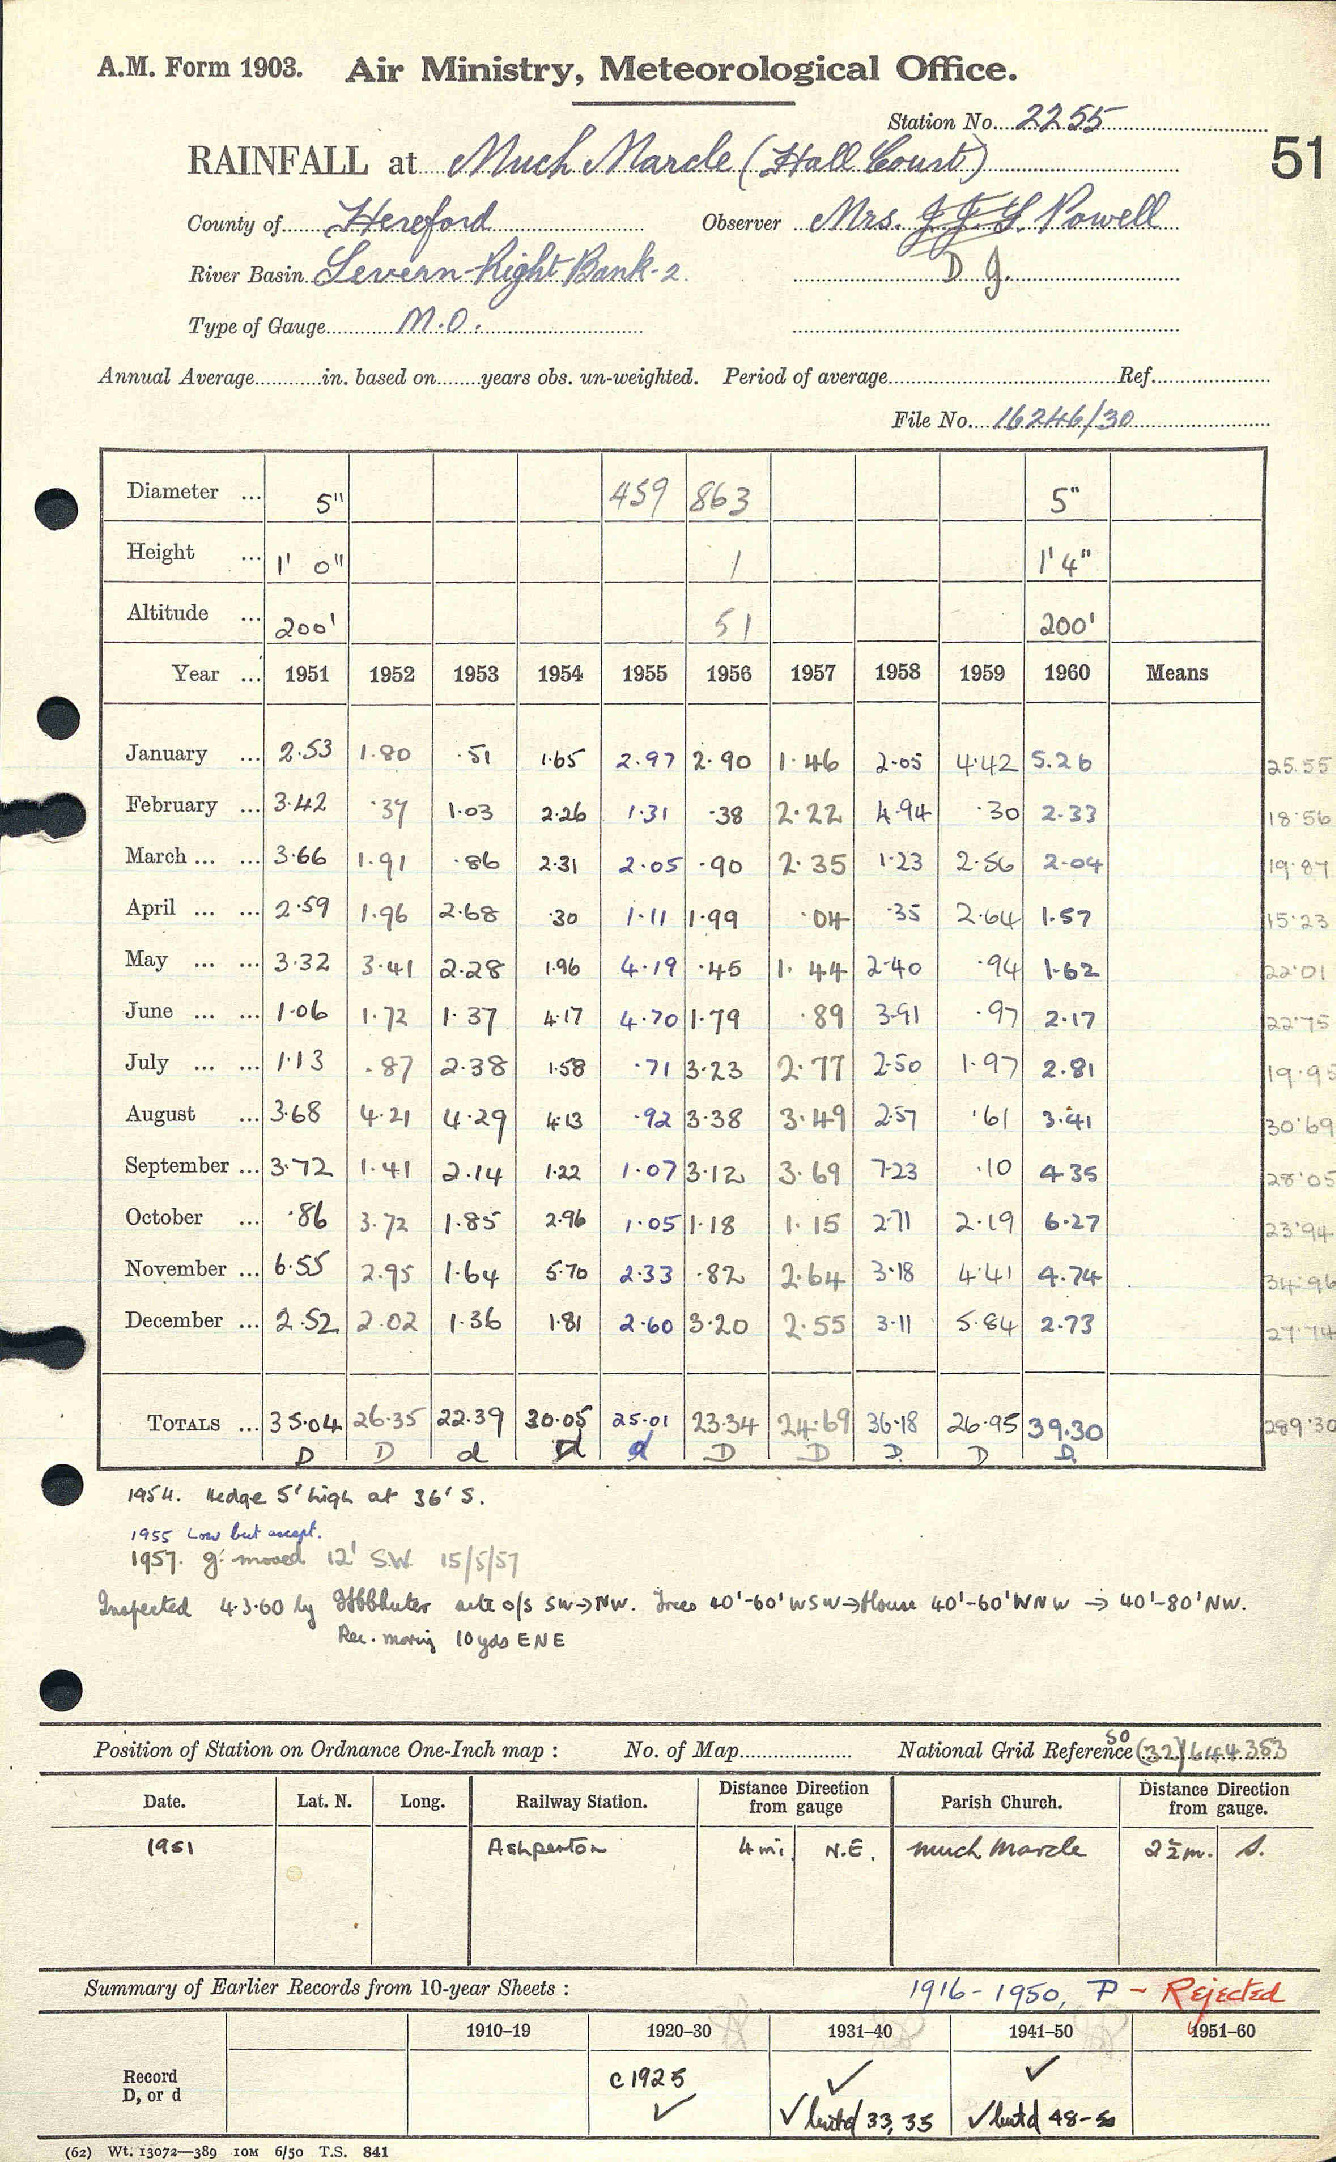 A.M. Form 1903. Air Ministry, Meteorological Office.
Station No. 2255
51
RAINFALL at Much Marcle (Hall Court)
County of Hereford Observer Mrs. J. J. G. Powell
River Basin Severn-Right Bank-2. D J.
Type of Gauge M.O.
Annual Average in. based on years obs. un-weighted. Period of average Ref.
File No. 16246/30
Diameter ... 5" 459 863 5"
Height ... 1' 0" 1 1' 4"
Altitude ... 200' 51 200'
Year ... 1951 1952 1953 1954 1955 1956 1957 1958 1959 1960 Means
January ... 2.53 1.80 .51 1.65 2.97 2.90 1.46 2.05 4.42 5.26 25.55
February ... 3.42 .37 1.03 2.26 1.31 .38 2.22 4.94 .30 2.33 18.56
March ... ... 3.66 1.91 .86 2.31 2.05 .90 2.35 1.23 2.56 2.04 19.87
April ... ... 2.59 1.96 2.68 .30 1.11 1.99 .04 .35 2.64 1.57 15.23
May ... ... 3.32 3.41 2.28 1.96 4.19 .45 1.44 2.40 .94 1.62 22.01
June ... ... 1.06 1.72 1.37 4.17 4.70 1.79 .89 3.91 .97 2.17 22.75
July ... ... 1.13 .87 2.38 1.58 .71 3.23 2.77 2.50 1.97 2.81 19.95
August ... 3.68 4.21 4.29 4.13 .92 3.38 3.49 2.57 .61 3.41 30.69
September ... 3.72 1.41 2.14 1.22 1.07 3.12 3.69 7.23 .10 4.35 28.05
October ... .86 3.72 1.85 2.96 1.05 1.18 1.15 2.71 2.19 6.27 23.94
November ... 6.55 2.95 1.64 5.70 2.33 .82 2.64 3.18 4.41 4.74 34.96
December ... 2.52 2.02 1.36 1.81 2.60 3.20 2.55 3.11 5.84 2.73 27.74
TOTALS ... 35.04 26.35 22.39 30.05 25.01 23.34 24.69 36.18 26.95 39.30 289.30
D D d d d D D D. D D.
1954. Hedge 5' high at 36' S.
1955 Low but accept.
1957. g. moved 12' S.W. 15/5/57
Inspected 4.3.60 by site o/s SW→NW. Trees 40'-60' WSW→House 40'-60' WNW → 40'-80' NW.
Rec. moving 10 yds ENE
Position of Station on Ordnance One-Inch map : No. of Map National Grid Reference SO (32) 644353
Date. Lat. N. Long. Railway Station. Distance Direction from gauge Parish Church. Distance Direction from gauge.
1951 Ashperton 4 mi. N.E. Much Marcle 2½ m. S.
Summary of Earlier Records from 10-year Sheets : 1916-1950, P - Rejected
1910–19 1920–30 1931–40 1941–50 1951–60
Record
D, or d
c 1925 ✓ ✓
✓ ✓ but d 33, 35 ✓ but d 48-50
(62) Wt. 13072—389 10M 6/50 T.S. 841